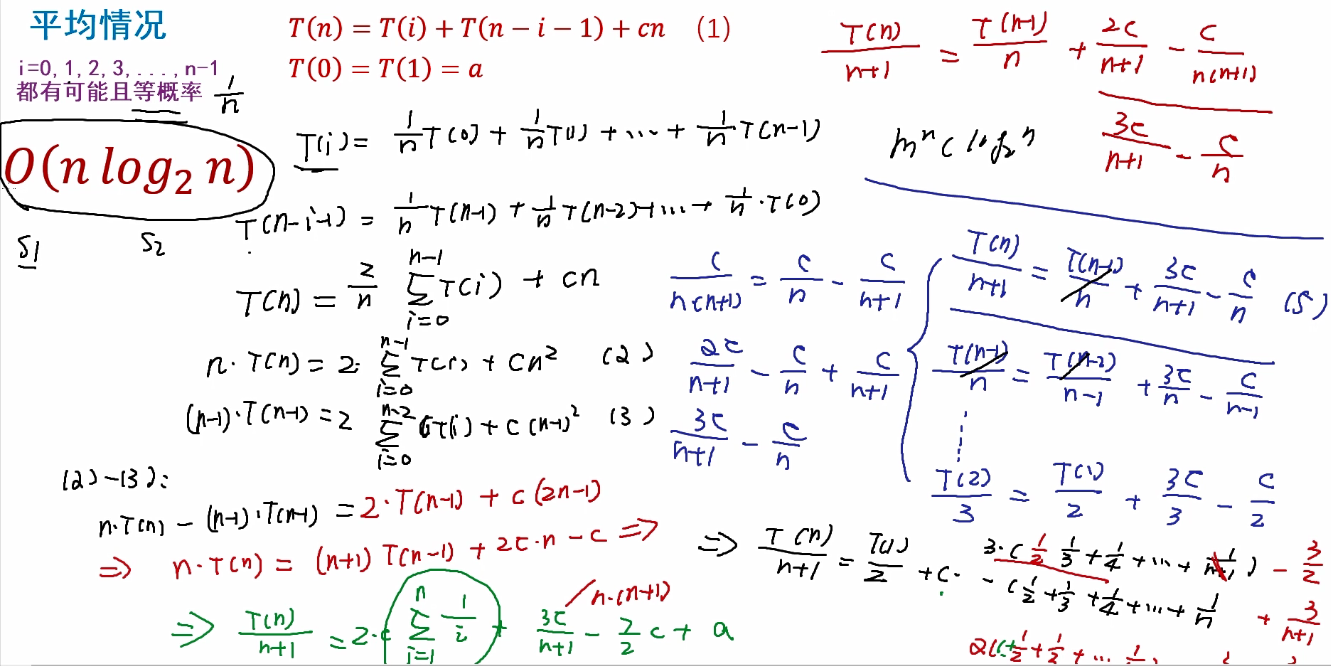 平均情况
T(n) = T(i) + T(n − i − 1) + cn (1)
T(0) = T(1) = a
i=0,1,2,3,...,n-1
都有可能且等概率 1/n
O(n log₂ n)
S1 S2
T(i) = 1/n T(0) + 1/n T(1) + ... + 1/n T(n-1)
T(n-i-1) = 1/n T(n-1) + 1/n T(n-2) + ... + 1/n · T(0)
T(n) = 2/n ∑_{i=0}^{n-1} T(i) + cn
n · T(n) = 2 · ∑_{i=0}^{n-1} T(i) + cn² (2)
(n-1) · T(n-1) = 2 ∑_{i=0}^{n-2} T(i) + c(n-1)² (3)
(2)-(3):
n·T(n) − (n-1)·T(n-1) = 2·T(n-1) + c(2n-1)
⇒ n·T(n) = (n+1) T(n-1) + 2c·n − c ⇒
⇒ T(n)/(n+1) = 2·c ∑_{i=1}^{n} 1/i + 3c/(n+1) − 7/2 c + a
n·(n+1)
T(n)/(n+1) = T(n-1)/n + 2c/(n+1) − c/(n(n+1))
3c/(n+1) − c/n
c/(n(n+1)) = c/n − c/(n+1)
2c/(n+1) − c/n + c/(n+1)
3c/(n+1) − c/n
T(n)/(n+1) = T(n-1)/n + 3c/(n+1) − c/n (5)
T(n-1)/n = T(n-2)/(n-1) + 3c/n − c/(n-1)
T(2)/3 = T(1)/2 + 3c/3 − c/2
⇒ T(n)/(n+1) = T(1)/2 + c· 3·(1/2 1/3 + 1/4 + ... + 1/(n+1)) − 3/2
− (1/2 + 1/3 + 1/4 + ... + 1/n + 3/(n+1)